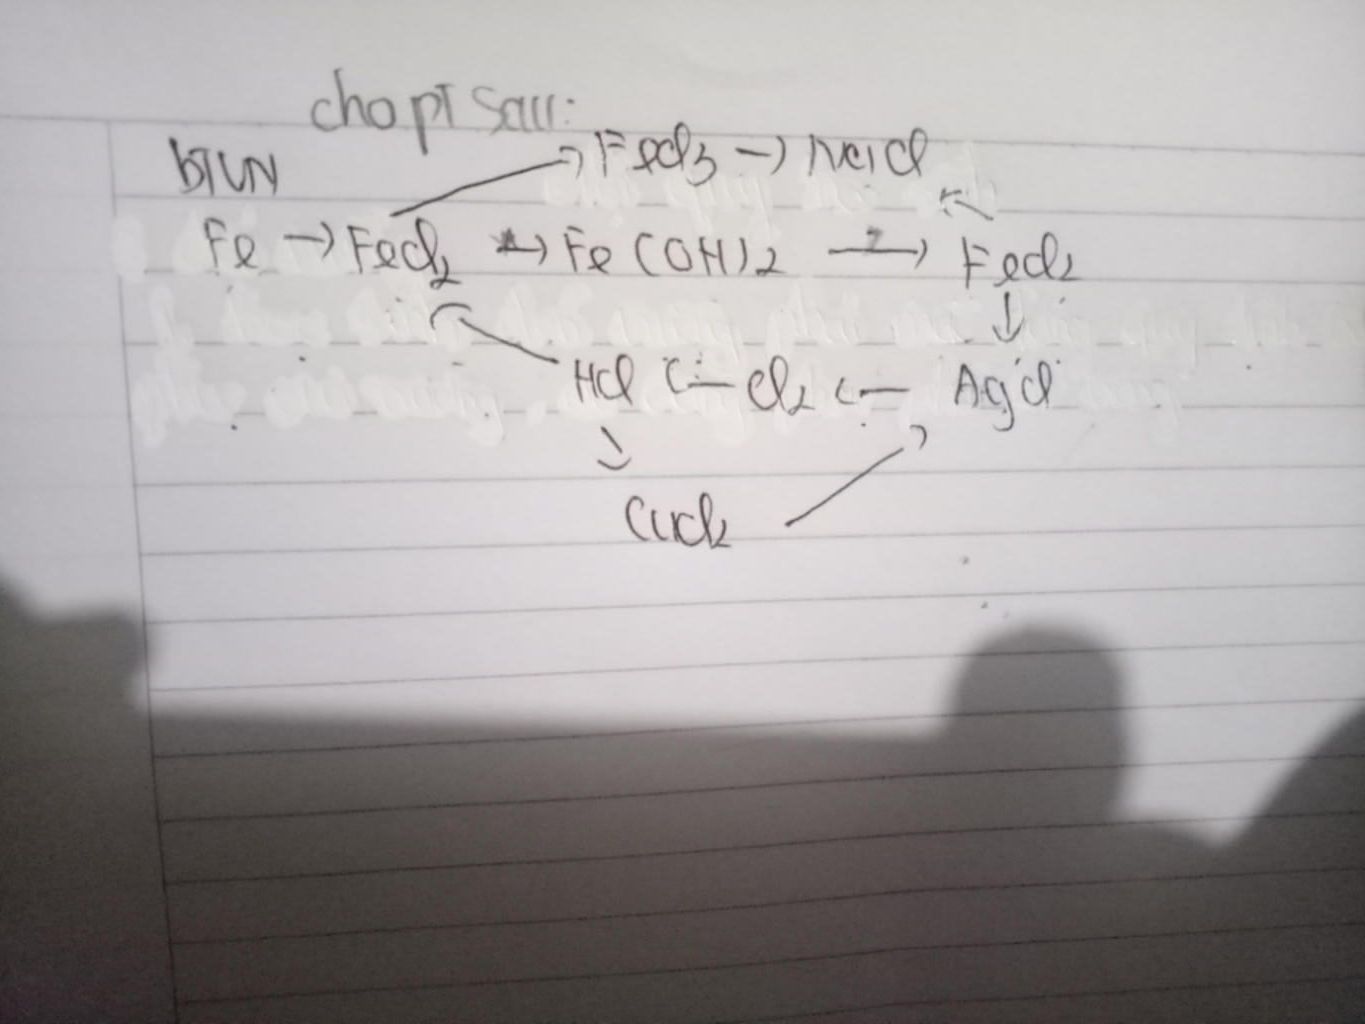 cho pT sau:
BTVN
FeCl3 → NaCl
Fe → FeCl2 → Fe(OH)2 → FeCl2
HCl ← Cl2 ← AgCl
CuCl2